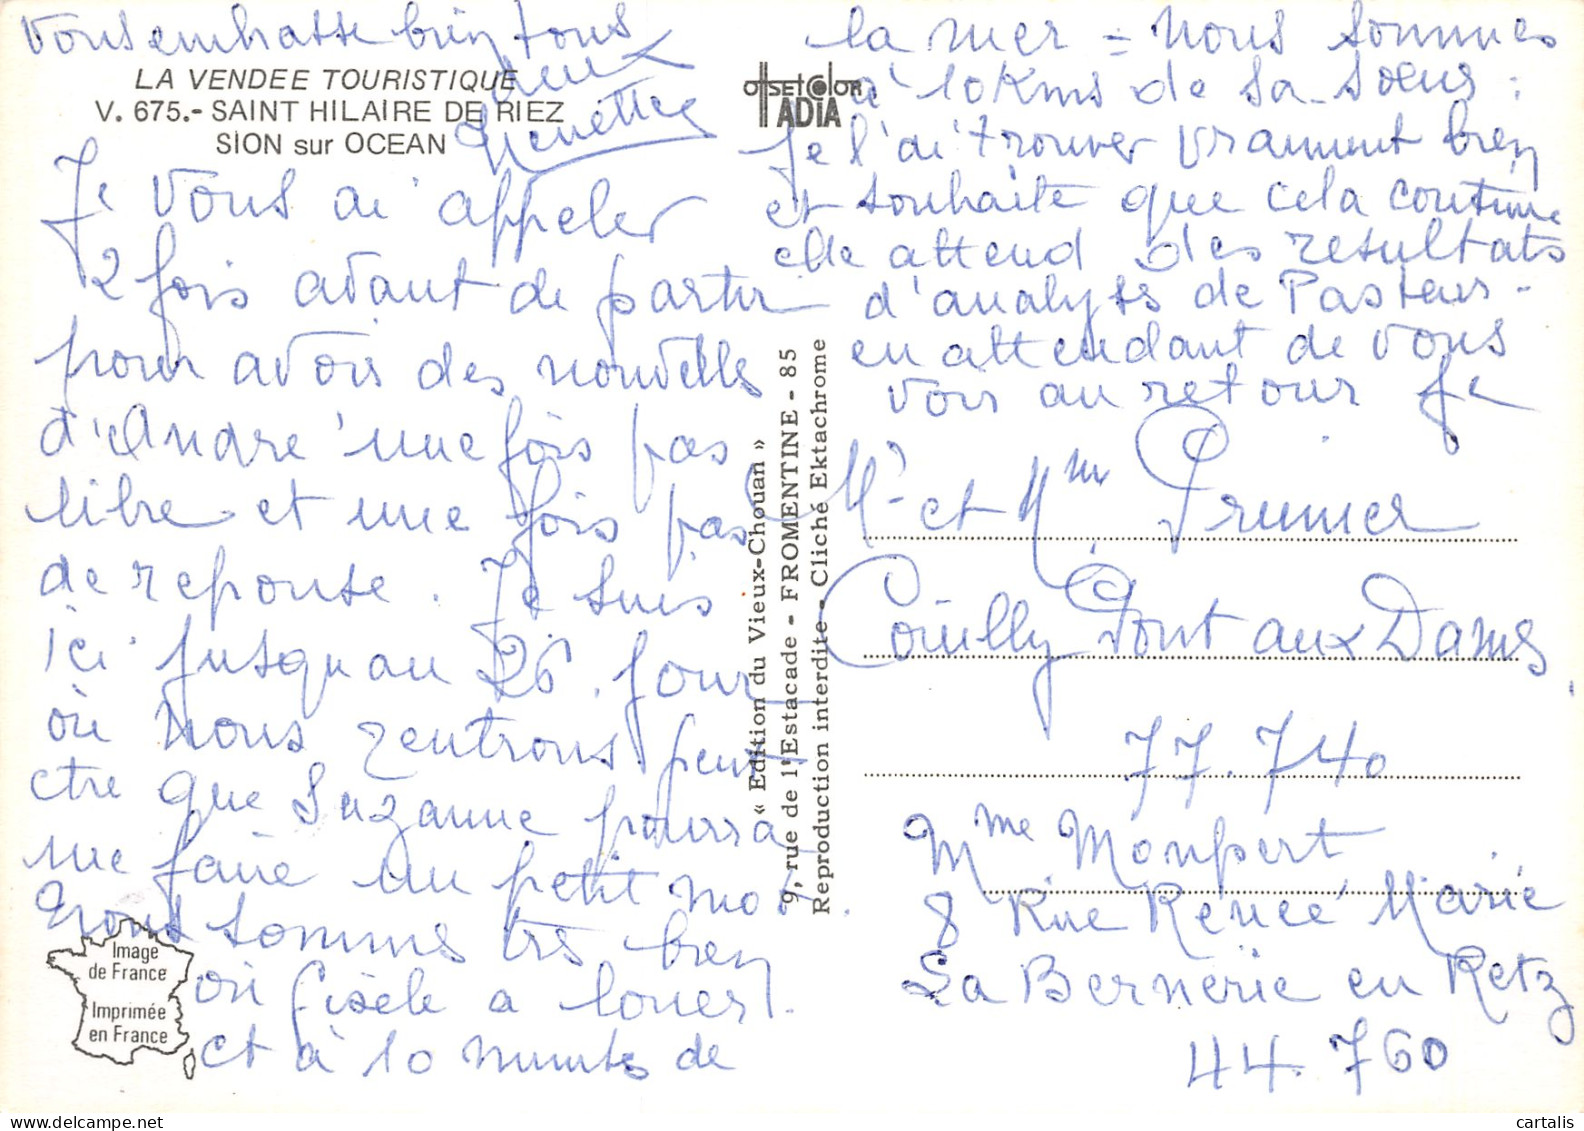 Vous embrasse bien tous
deux
LA VENDEE TOURISTIQUE
V. 675.- SAINT HILAIRE DE RIEZ
SION sur OCEAN
Je vous ai appeler
2 fois avant de partir
pour avoir des nouvelles
d'André une fois pas
libre et une fois pas
de reponse. Je suis
ici jusqu au 26. jour
où nous rentrons peut
etre que Suzanne pourra
me faire un petit mot
nous sommes très bien
où Gisèle a louer.
et à 10 minutes de
la mer = nous sommes
a' 10 Kms de sa sœur :
Je l'ai trouver vraiment bien
et souhaite que cela continue
elle attend des resultats
d'analyses de Pasteur -
en attendant de vous
voir au retour je
offsetcolor
ADIA
« Edition du Vieux-Chouan »
9, rue de l'Estacade - FROMENTINE - 85
Reproduction interdite - Cliché Ektachrome
Mr et Mme Prunier
Couilly Pont aux Dames
77.740
Mme Monpert
8 Rue Renée Marie
La Bernerie en Retz
44.760
Image
de France
Imprimée
en France
cartalis